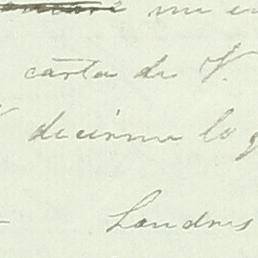 me
carta de V.
decirme lo
Londres